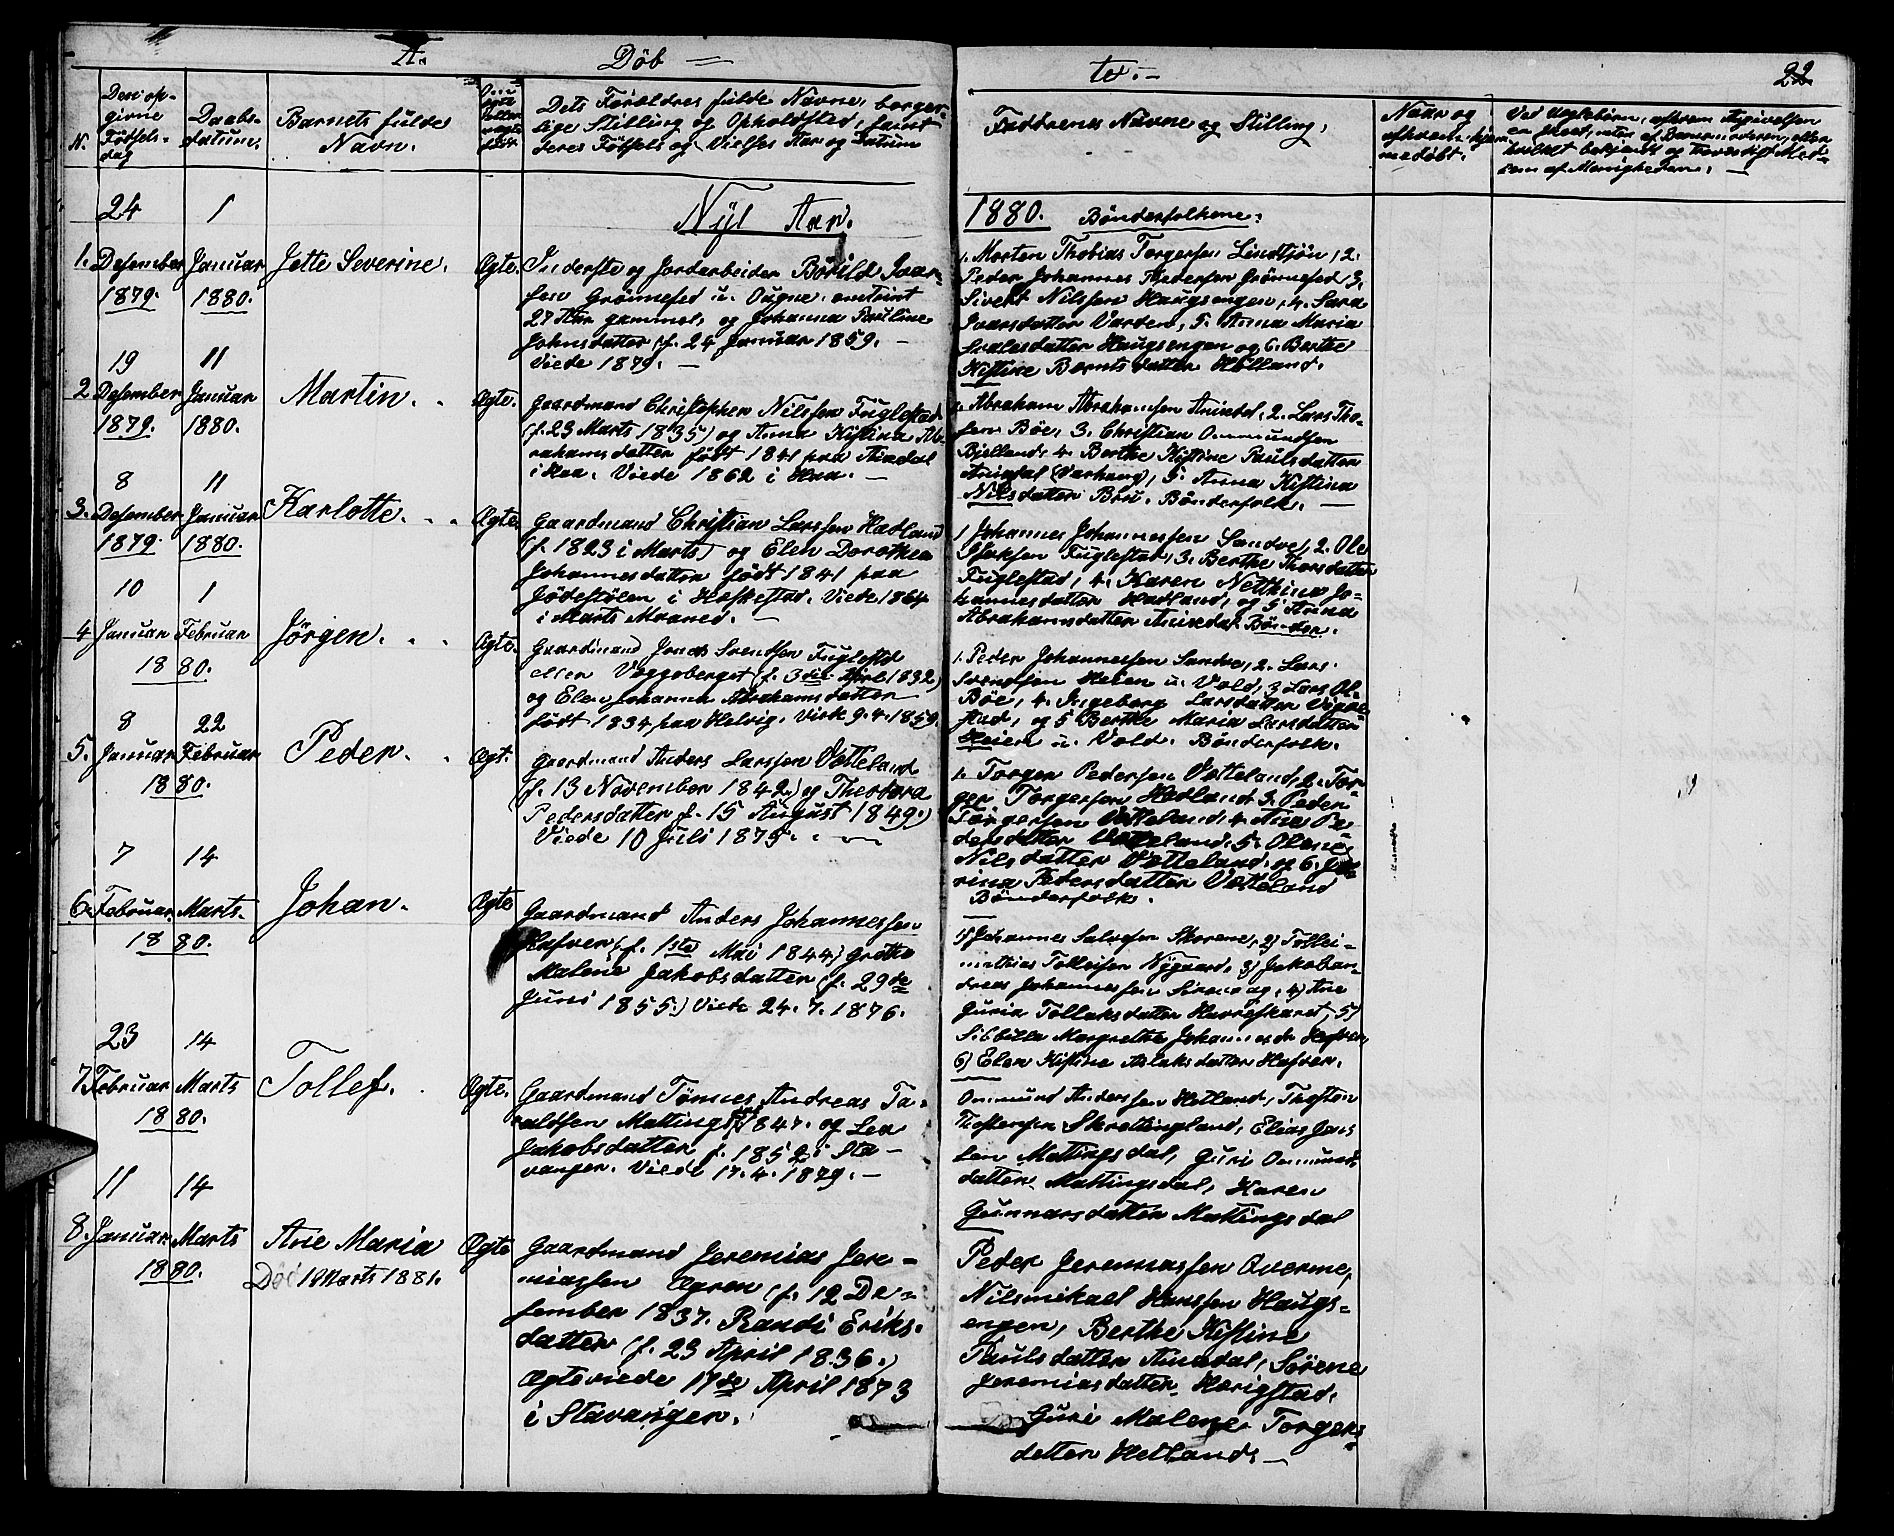 A. Döb —
te. —
22
N.
Den op-
givne
Fötsels-
dag
Daabs-
datum.
Barnets fulde
Navn.
Dets Forældres fulde Navne, borger-
lige Stilling og Opholdsted, samt
deres Fötsels og Vielses Aar og Datum
Faddrenes Navne og Stilling,
Naar og
afhvem hjem-
medøbt.
Ved Uegtebörn, afhvem Angivelsen
er skeet, enten af Barnemoderen, eller
hvilket bekjendt og troværdigt Med-
lem af Menigheden. —
Nyt Aar.
1880. Bönderfolkene:
24
1
1. Desember Januar Jette Severine. Ægte.
1879. 1880.
Inderste og Jordarbeider Börild Ivar-
sen Grönnesed u. Ougne. omtrint
27 Aar gammel, og Johanna Pauline
Johnsdatter (f. 24 Januar 1859. —
Viede 1879. —
1. Morten Thobias Torgersen Lindtjön, 2.
Peder Johannes Pedersen Grönnesed 3.
Sivert Nilssen Haugsengen, 4. Sara
Ivarsdatter Varden, 5. Anna Maria
Svalesdatter Haugsengen og 6. Berthe
Kistine Berntsdatter Holland.
19
11
2 Desember Januar Martin. Ægte.
1879. 1880.
Gaardmand Christopher Nilssen Fuglestad
(f. 23 Marts 1835) og Anna Kistina Ab-
rahamsdatter født 1841 paa Aniedal
i Haa. Viede 1862 i Haa. —
1. Abraham Abrahamsen Aniedal, 2. Lars Tho-
sen Böe, 3. Christian Ommundsen
Bjelland, 4. Berthe Kistine Paulsdatter
Aniedal (Varhaug), 5. Anna Kistina
Nilsdatter Brü. Bönderfolk. —
8
11
3. Desember Januar Karlotte. Ægte.
1879. 1880.
Gaardmand Christian Larssen Hadland
(f. 1823 i Marts) og Elen Dorothea
Johannesdatter født 1841 paa
Jödestölen i Heskestad. Viede 1864
i Marts Maaned. —
1 Johannes Johannessen Sandve, 2. Ole
Isaksen Fuglestad, 3. Berthe Thorsdatter
Fuglestad, 4. Karen Nethina Jo-
hannesdatter Hadland, og 5 Anna
Abrahamsdatter Aniedal. Bönder.
10
1
4 Januar Februar Jørgen. Ægte.
1880.
Gaardmand Jonas Svendsen Fuglestd
eller Væggeberget (f. 3die April 1832)
og Elen Johanna Abrahamsdatter
født 1834 paa Helvig. Viede 9. 4. 1859.
1. Peder Johannessen Sandve, 2. Lars
Svendsen Heien u. Vold, 3 Lars Ol-
Böe, 4. Ingeborg Larsdatter Vigre-
stad, og 5 Berthe Maria Larsdatter
Heien u. Vold. Bönderfolk.
8
22
5. Januar Februar Peder. Ægt.
1880.
Gaardmand Anders Larssen Votteland
(f. 13 November 1842.) og Theodora
Pedersdatter f. 15 August 1849.)
Viede 10 Juli 1875. —
1. Torger Pedersen Votteland, 2. Tor-
ger Torgersen Hetland 3. Peder
Torgersen Votteland, 4. Ana Pe-
dersdatter Votteland. 5. Olene
Nilsdatter Votteland, og 6.
rina Pedersdatter Votteland
Bönderfolk.
7
14
6. Februar Marts. Johan. Ægte
1880.
Gaardmand Anders Johannessen
Hafver (f. 1ste Mai 1844) Grethe
Malene Jakobsdatter (f. 29de
Juni 1855.) Viede 24. 7. 1876.
1) Johannes Salvesen Skorene, 2) Tollei-
mathias Tolleifsen Nygaard, 3) Jakoban-
dreas Johannessen Sirevaag, 4) Ane
Guria Tollaksdatter Havreskaret, 5)
Sibbilla Margrethe Johannesdr Hafver,
6) Elen Kistine Aslaksdatter Hafver.
23
14
7. Februar Marts Tollef. Ægte.
1880.
Gaardmand Tönnes Andreas Ta-
raldsen Mattingsdal 1847. og Lea
Jakobsdatter f. 1852 i Sta-
vanger. Viede 17. 4. 1879. —
Ommund Anderssen Hetland, Thosten
Thostensen Skrettingland, Elias Jens
sen Mattingsdal, Guri Ommunds
datter Mattingsdal, Karen
Gunnarsdatter Mattingsdal
11
14
8. Januar Marts Ane Maria Ægte
1880. Död 18 Marts 1881.
Gaardmand Jeremias Jere-
miassen Ogren (f. 12 De-
sember 1837. Randi Eriks-
datter (f. 23 April 1836.)
Ægteviede 17de April 1873
i Stavanger.
Peder Jeremiassen Qverme,
Nilsmikael Hanssen Haugs-
engen, Berthe Kistine
Paulsdatter Aniedal, Sörene
Jeremiasdatter Herigstad,
Guri Malene Torgers-
datter Hetland. —